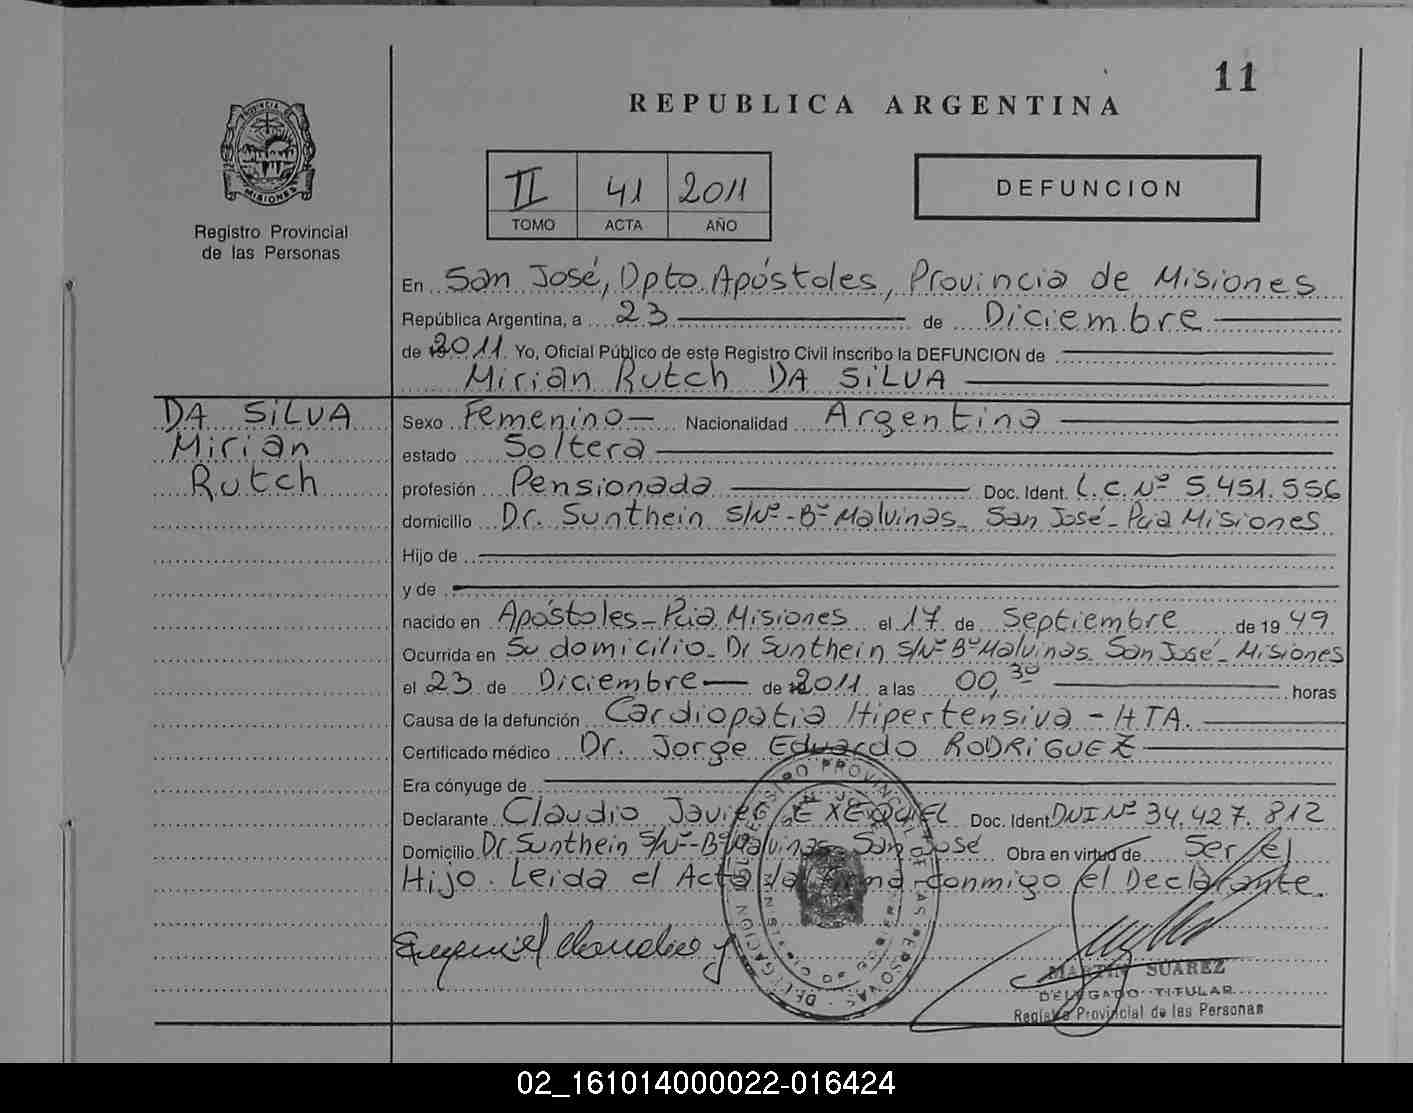 11
REPUBLICA ARGENTINA
PROVINCIA DE
MISIONES
Registro Provincial
de las Personas
II 41 2011
TOMO ACTA AÑO
DEFUNCION
En San José, Dpto. Apóstoles, Provincia de Misiones
República Argentina, a 23 de Diciembre
de 2011 Yo, Oficial Público de este Registro Civil inscribo la DEFUNCION de
Mirian Rutch DA SiLVA
DA SiLVA
Mirian
Rutch
Sexo Femenino Nacionalidad Argentina
estado Soltera
profesión Pensionada Doc. Ident. L.C. Nº 5.451.556
domicilio Dr. Sunthein S/Nº - Bº Malvinas - San José - Pcia Misiones
Hijo de
y de
nacido en Apóstoles - Pcia. Misiones el 17 de Septiembre de 19 49
Ocurrida en Su domicilio - Dr Sunthein S/Nº Bº Malvinas - San José - Misiones
el 23 de Diciembre de 2011 a las 00,30 horas
Causa de la defunción Cardiopatia Hipertensiva - HTA.
Certificado médico Dr. Jorge Eduardo RODRiGUEZ
Era cónyuge de
Declarante Claudio Javier EXEQUiEL Doc. Ident. DNI Nº 34.427.812
Domicilio Dr. Sunthein S/Nº - Bº Malvinas - San José Obra en virtud de Ser el
Hijo. Leida el Acta la firma conmigo el Declarante.
REGISTRO PROVINCIAL DE LAS PERSONAS
DELEGACION
SAN JOSE
MISIONES
Exequiel Claudio J
MARTIN SUAREZ
DELEGADO TITULAR
Registro Provincial de las Personas
02_161014000022-016424